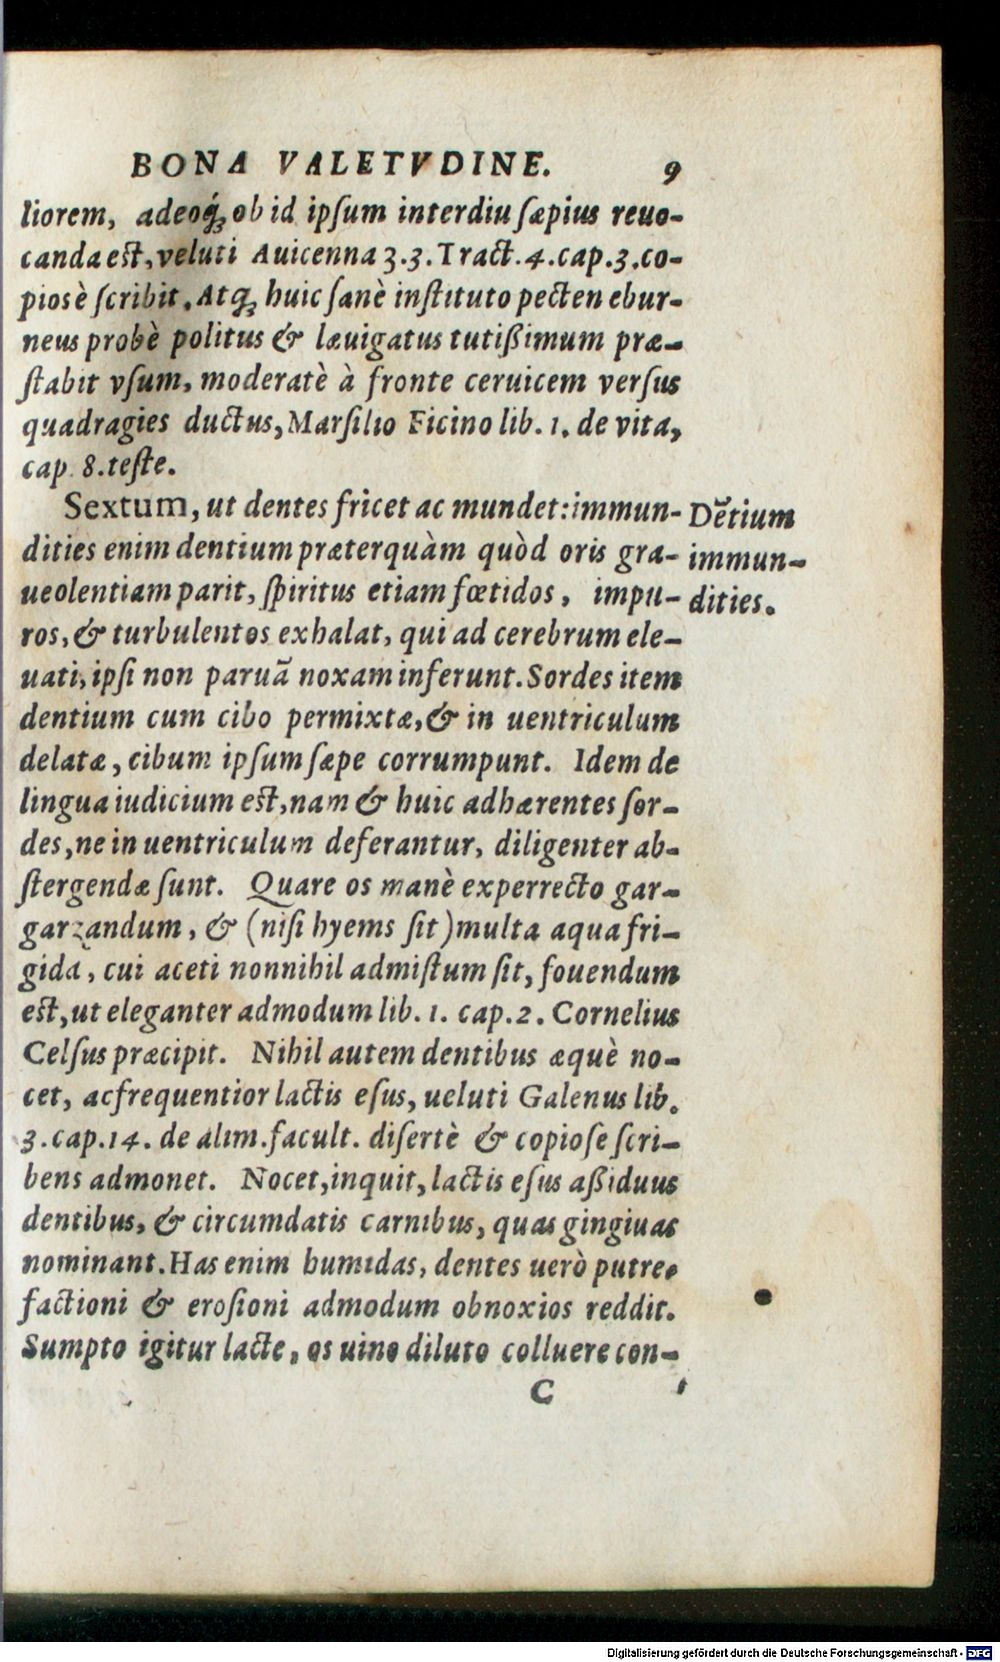 BONA VALETVDINE. 9
liorem, adeoq́; ob id ipſum interdiu ſæpius reuo-
canda eſt, veluti Auicenna 3.3. Tract. 4. cap. 3. co-
piosè ſcribit. Atq; huic ſanè inſtituto pecten ebur-
neus probè politus & læuigatus tutißimum præ-
ſtabit vſum, moderatè à fronte ceruicem verſus
quadragies ductus, Marſilio Ficino lib. 1. de vita,
cap. 8. teſte.
Sextum, ut dentes fricet ac mundet: immun-
Dētium
dities enim dentium præterquàm quòd oris gra-
immun-
ueolentiam parit, ſpiritus etiam fœtidos, impu-
dities.
ros, & turbulentos exhalat, qui ad cerebrum ele-
uati, ipſi non paruā noxam inferunt. Sordes item
dentium cum cibo permixtæ, & in uentriculum
delatæ, cibum ipſum ſæpe corrumpunt. Idem de
lingua iudicium eſt, nam & huic adhærentes ſor-
des, ne in uentriculum deferantur, diligenter ab-
ſtergendæ ſunt. Quare os manè experrecto gar-
garzandum, & (niſi hyems ſit) multa aqua fri-
gida, cui aceti nonnihil admiſtum ſit, fouendum
eſt, ut eleganter admodum lib. 1. cap. 2. Cornelius
Celſus præcipit. Nihil autem dentibus æquè no-
cet, ac frequentior lactis eſus, ueluti Galenus lib.
3. cap. 14. de alim. facult. diſertè & copioſe ſcri-
bens admonet. Nocet, inquit, lactis eſus aßiduus
dentibus, & circumdatis carnibus, quas gingiuas
nominant. Has enim humidas, dentes uerò putre-
factioni & eroſioni admodum obnoxios reddit.
Sumpto igitur lacte, os uino diluto colluere con-
C
Digitalisierung gefördert durch die Deutsche Forschungsgemeinschaft - DFG